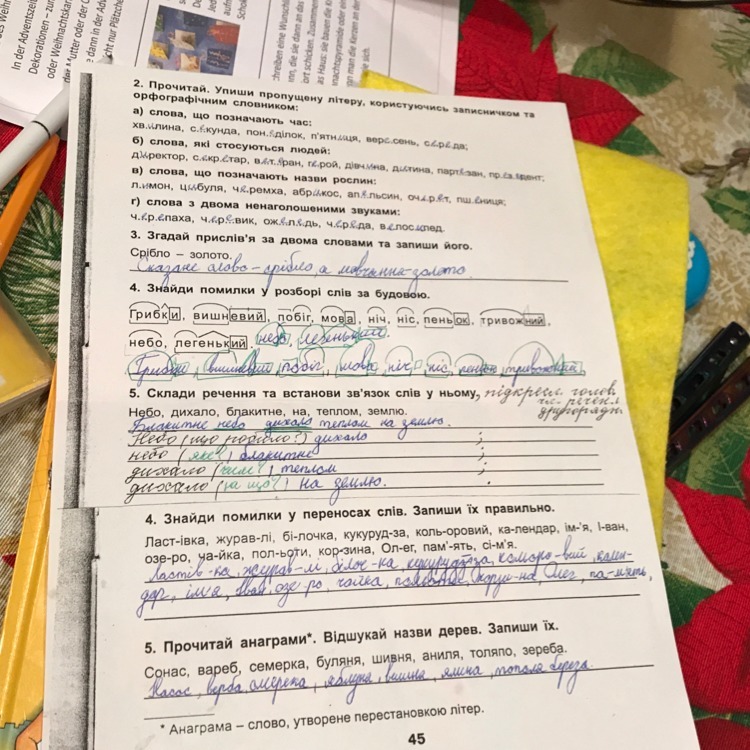 In der Adventszeit
Dekorationen – zu
oder Weihnachtskar
der Mutter oder der
dann in der Adv
cht nur Plätzch
chreiben eine Wunschl
ort schicken. Zusammen
2. Прочитай. Упиши пропущену літеру, користуючись записничком та
орфографічним словником:
а) слова, що позначають час:
хвилина, секунда, понеділок, п'ятниця, вересень, середа;
б) слова, які стосуються людей:
директор, секретар, ветеран, герой, дівчина, дитина, партизан, президент;
в) слова, що позначають назви рослин:
лимон, цибуля, черемха, абрикос, апельсин, очерет, пшениця;
г) слова з двома ненаголошеними звуками:
черепаха, черевик, ожеледь, череда, велосипед.
3. Згадай прислів'я за двома словами та запиши його.
Срібло – золото.
Сказане слово – срібло, а мовчання – золото.
4. Знайди помилки у розборі слів за будовою.
Грибки, вишневий, побіг, мова, ніч, ніс, пеньок, тривожний,
небо, легенький, небо, легенький.
Грибки, вишневий, побіг, мова, ніч, ніс, пеньок, тривожний,
5. Склади речення та встанови зв'язок слів у ньому, підкресл. голов.
чл. речення
другорядн.
Небо, дихало, блакитне, на, теплом, землю.
Блакитне небо дихало теплом на землю.
Небо (що робило?) дихало ;
небо (яке?) блакитне ;
дихало (чим?) теплом ;
дихало (на що?) на землю.
4. Знайди помилки у переносах слів. Запиши їх правильно.
Ласт-івка, журав-лі, бі-лочка, кукуруд-за, коль-оровий, ка-лендар, ім-'я, І-ван,
озе-ро, ча-йка, пол-ьоти, кор-зина, Ол-ег, пам'-ять, сі-м'я.
Ластів-ка, журав-лі, білоч-ка,
ім'я, Іван, озе-ро, чайка, Олег,
5. Прочитай анаграми*. Відшукай назви дерев. Запиши їх.
Сонас, вареб, семерка, буляня, шивня, аниля, толяпо, зереба.
Насос, верба, смерека, яблуня, вишня, ялина, тополя береза.
* Анаграма – слово, утворене перестановкою літер.
45